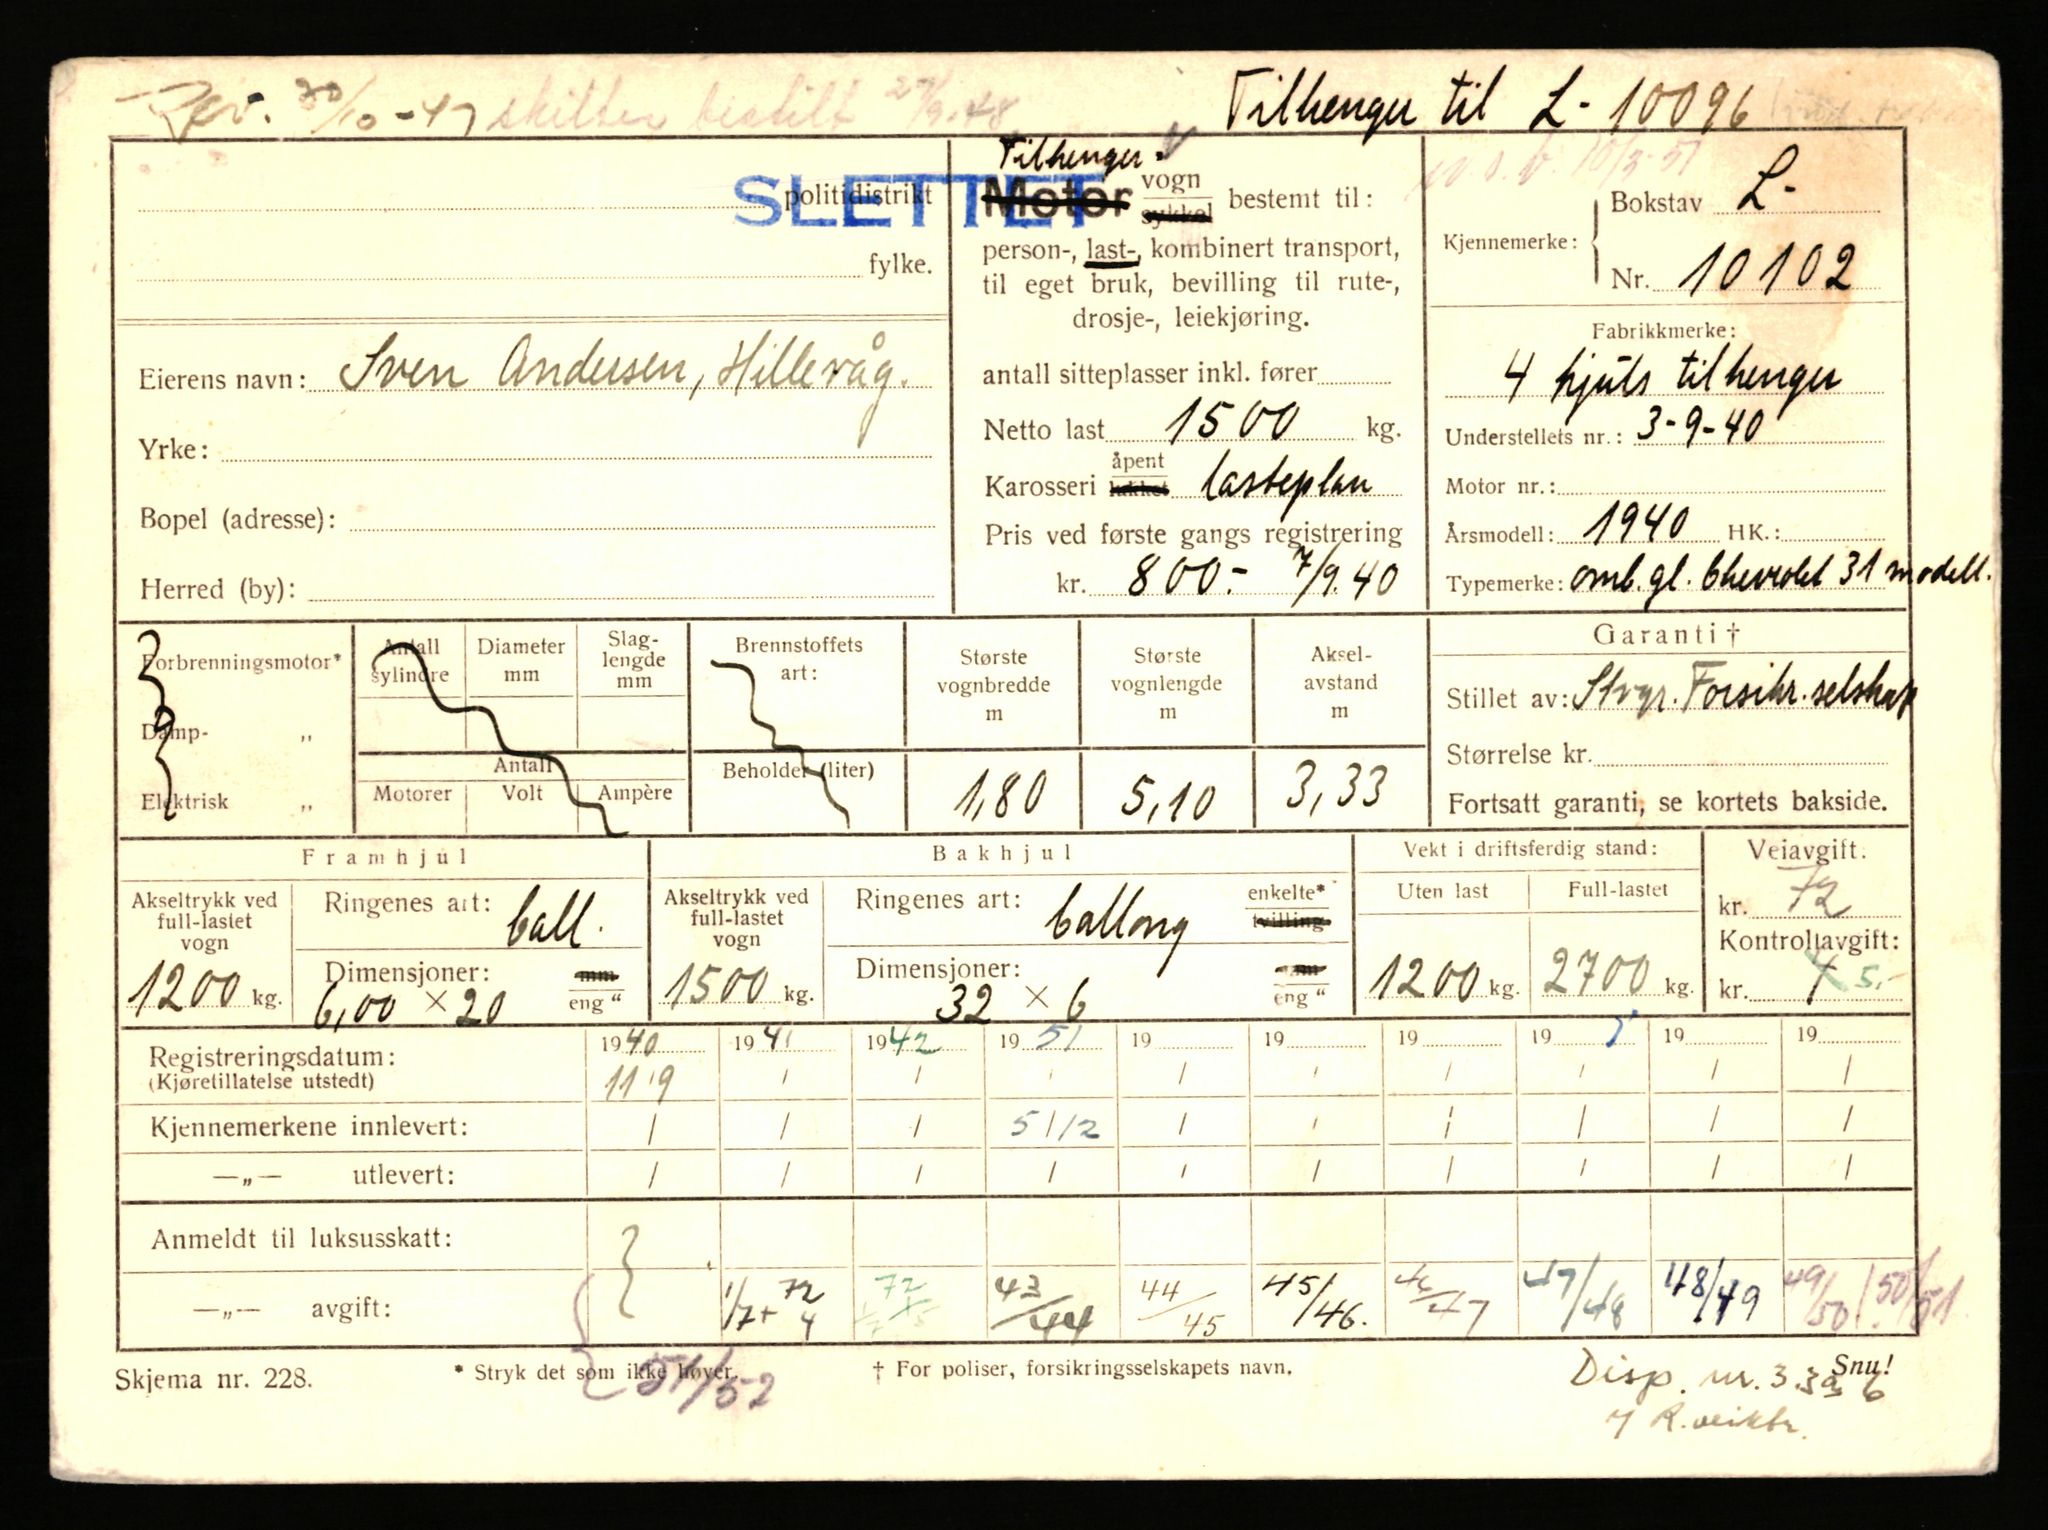 Rev. 30/10-47 skilter bestilt 27/9.48
Tilhenger til L- 10096
Tilhenger
SLETTET
politidistrikt
fylke.
Motor vogn sykkel bestemt til:
person-, last-, kombinert transport,
til eget bruk, bevilling til rute-,
drosje-, leiekjøring.
antall sitteplasser inkl. fører
Netto last 1500 kg.
Karosseri åpent lukket lasteplan
Pris ved første gangs registrering
kr. 800.- 7/9.40
Kjennemerke: Bokstav L-
Nr. 10102
Fabrikkmerke:
4 hjuls tilhenger
Understellets nr.: 3-9-40
Motor nr.:
Årsmodell: 1940 HK.:
Typemerke: omb. gl. Chevrolet 31 modell.
Eierens navn: Sven Andersen, Hillevåg.
Yrke:
Bopel (adresse):
Herred (by):
Forbrenningsmotor*
Damp- „
Elektrisk „
Antall sylindre
Diameter mm
Slaglengde mm
Antall
Motorer Volt Ampère
Brennstoffets art:
Beholder (liter)
Største vognbredde m
1,80
Største vognlengde m
5,10
Aksel-avstand m
3,33
Garanti †
Stillet av: Stvgr. Forsikr. selskap
Størrelse kr.
Fortsatt garanti, se kortets bakside.
Framhjul
Akseltrykk ved full-lastet vogn
1200 kg.
Ringenes art: ball.
Dimensjoner: mm eng "
6,00 × 20
Bakhjul
Akseltrykk ved full-lastet vogn
1500 kg.
Ringenes art: ballong enkelte* tvilling
Dimensjoner: mm eng "
32 × 6
Vekt i driftsferdig stand:
Uten last Full-lastet
1200 kg. 2700 kg.
Veiavgift.
kr. 72
Kontrollavgift:
kr. 4 5.-
Registreringsdatum: 1940 1941 1942 1951 19 19 19 19 19 19
(Kjøretillatelse utstedt) 11/9
Kjennemerkene innlevert: 5/12
—„— utlevert:
Anmeldt til luksusskatt:
—„— avgift: 1/7+ 72 4 72 43/44 44/45 45/46. 46/47 47/48 48/49 49/50 50/51
51/52
Skjema nr. 228.
* Stryk det som ikke høver.
† For poliser, forsikringsselskapets navn.
Snu!
Disp. nr. 3.